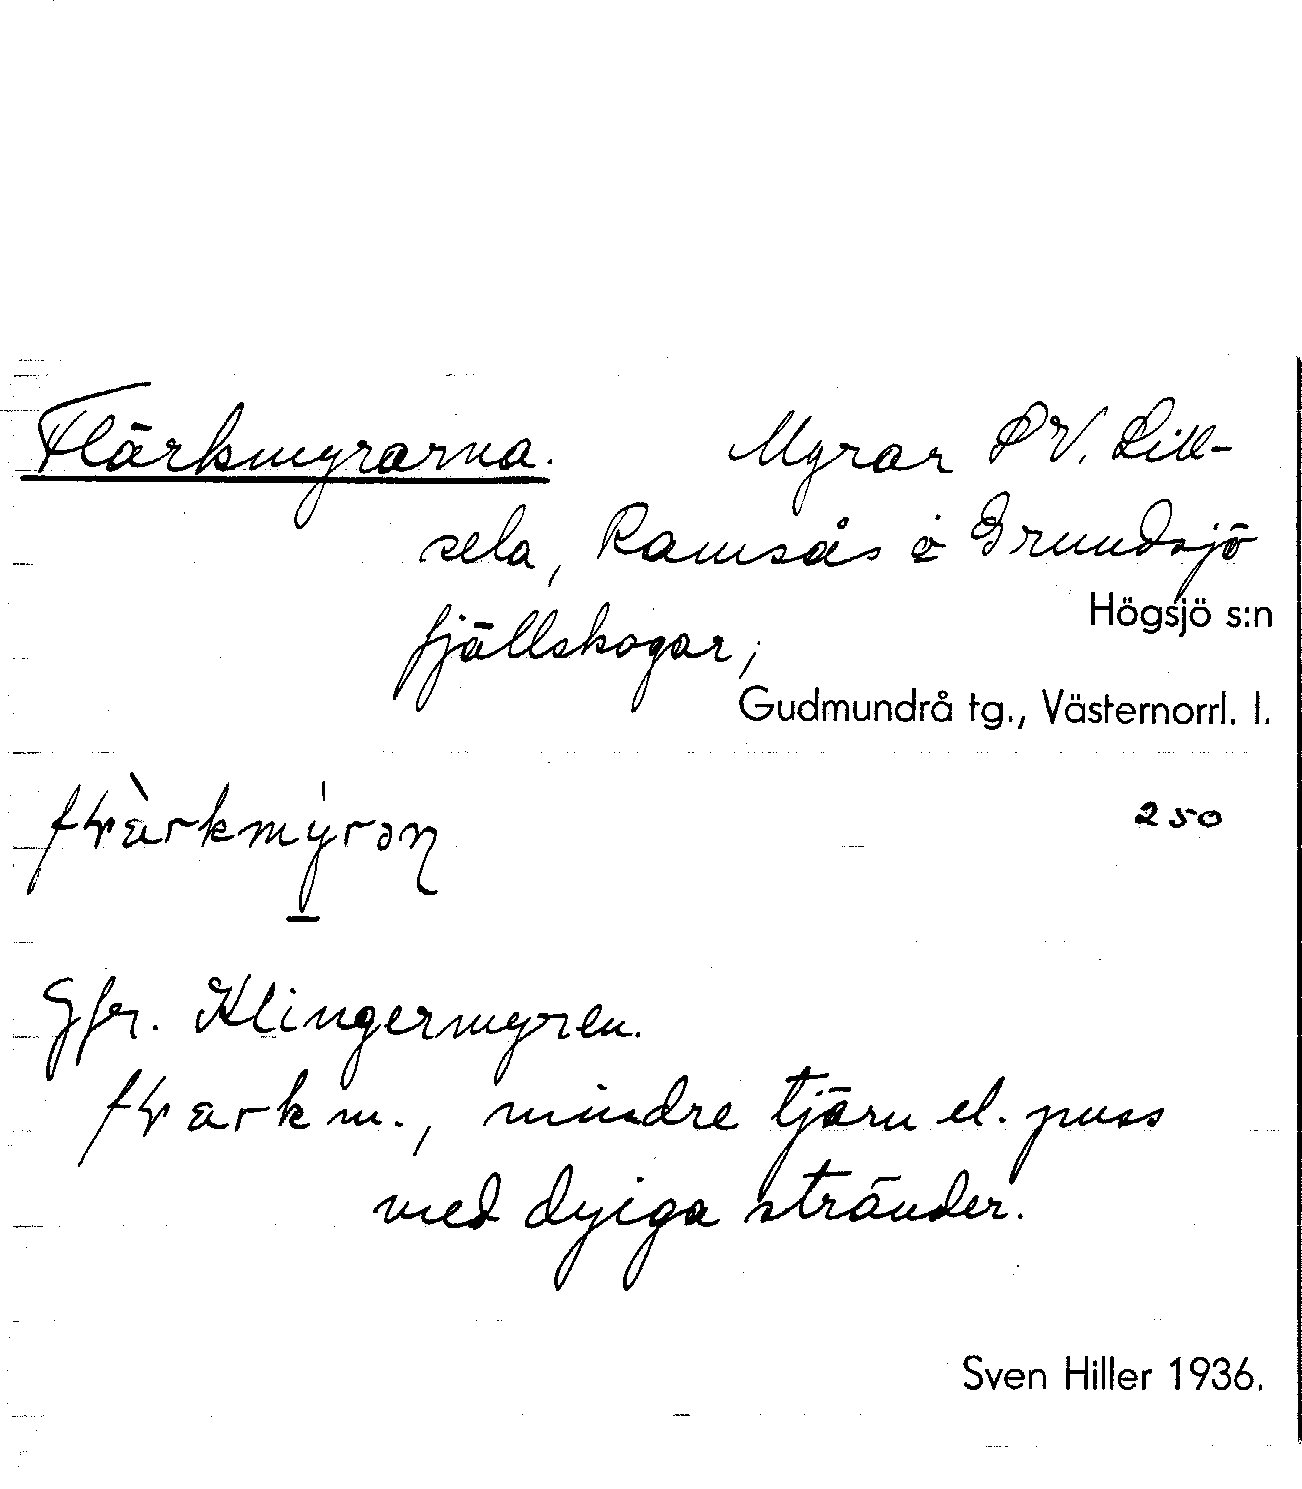 Flärkmyrarna. Myrar PV. Lill-
sela, Ramsås o Grundsjö
Högsjö s:n
fjällskogar,
Gudmundrå tg., Västernorrl. l.
250
Gfr. Klingermyren.
mindre tjärn el. puss
med dyiga stränder.
Sven Hiller 1936.